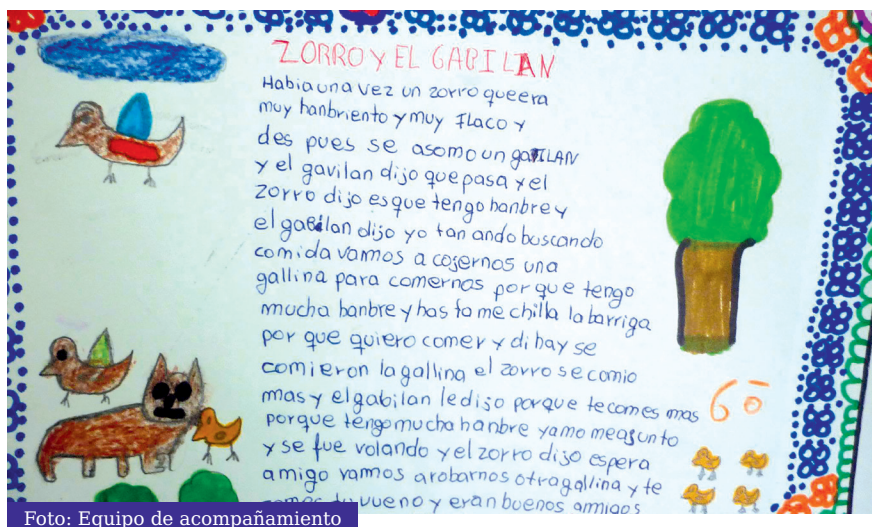 ZORRO Y EL GABILAN
Habia una vez un zorro que era
muy hanbriento y muy flaco y
des pues se asomo un gaVILAN
y el gavilan dijo que pasa y el
zorro dijo es que tengo hanbre y
el gabilan dijo yo tan ando buscando
comida vamos a cojernos una
gallina para comernos por que tengo
mucha hanbre y has ta me chilla la barriga
por que quiero comer y di hay se
comieron la gallina el zorro se comio
mas y el gabilan le dijo porque te comes mas
porque tengo mucha hanbre ya no me ajunto
y se fue volando y el zorro dijo espera
amigo vamos a robarnos otra gallina y te
vueno y eran buenos amigos
6º
Foto: Equipo de acompañamiento